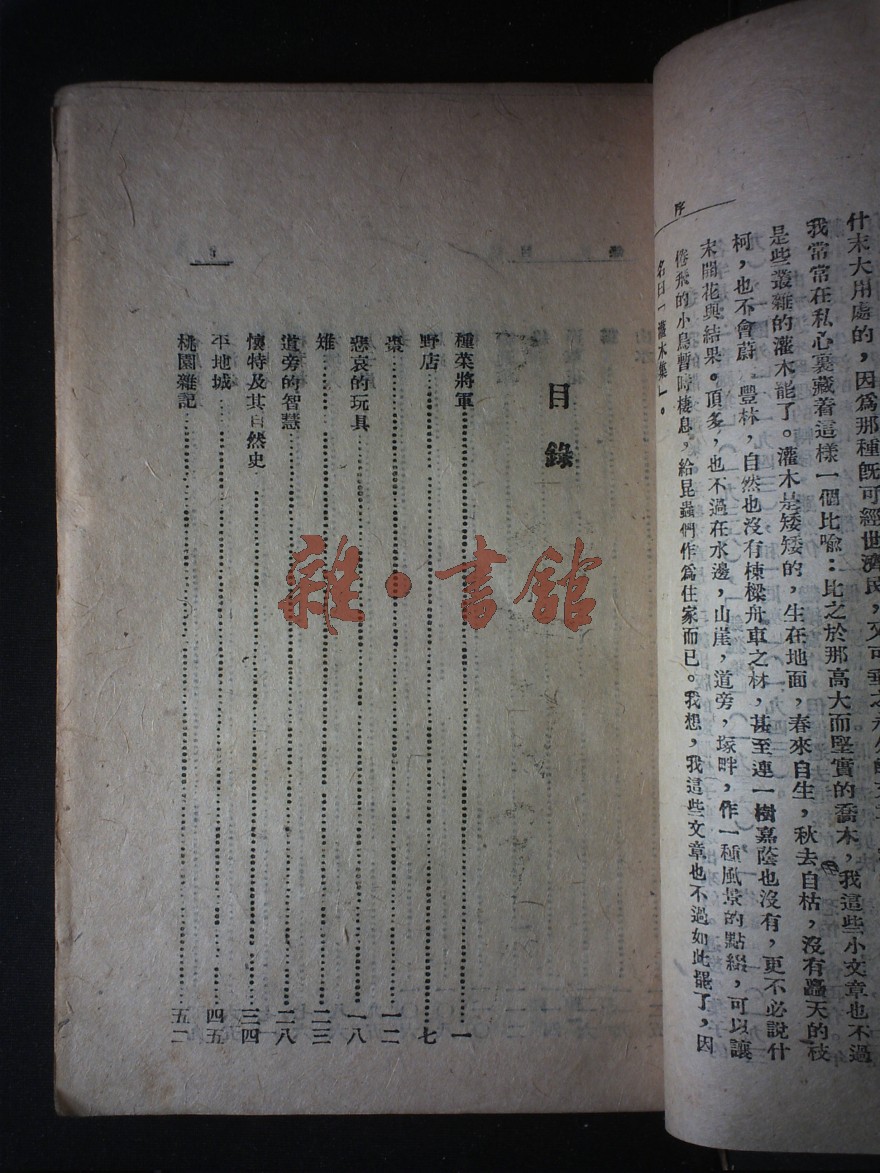 序
什末大用處的，因爲那種既可經世濟民，又可垂之永久的文章，
我常常在私心裏藏着這樣一個比喻：比之於那高大而堅實的喬木，我這些小文章也不過
是些叢雜的灌木罷了。灌木是矮矮的，生在地面，春來自生，秋去自枯，沒有矗天的枝
柯，也不會蔚　豐林，自然也沒有棟樑舟車之林，甚至連一樹嘉蔭也沒有，更不必說什
末開花與結果。頂多，也不過在水邊，山崖，道旁，塚畔，作一種風景的點綴，可以讓
倦飛的小鳥暫時棲息，給昆蟲們作爲住家而已。我想，我這些文章也不過如此罷了，因
名曰「灌木集」。
目錄
種菜將軍……一
野店……七
棗……一二
悲哀的玩具……一八
雉……二三
道旁的智慧……二八
懷特及其自然史……三四
平地城……四五
桃園雜記……五二
雜·書館